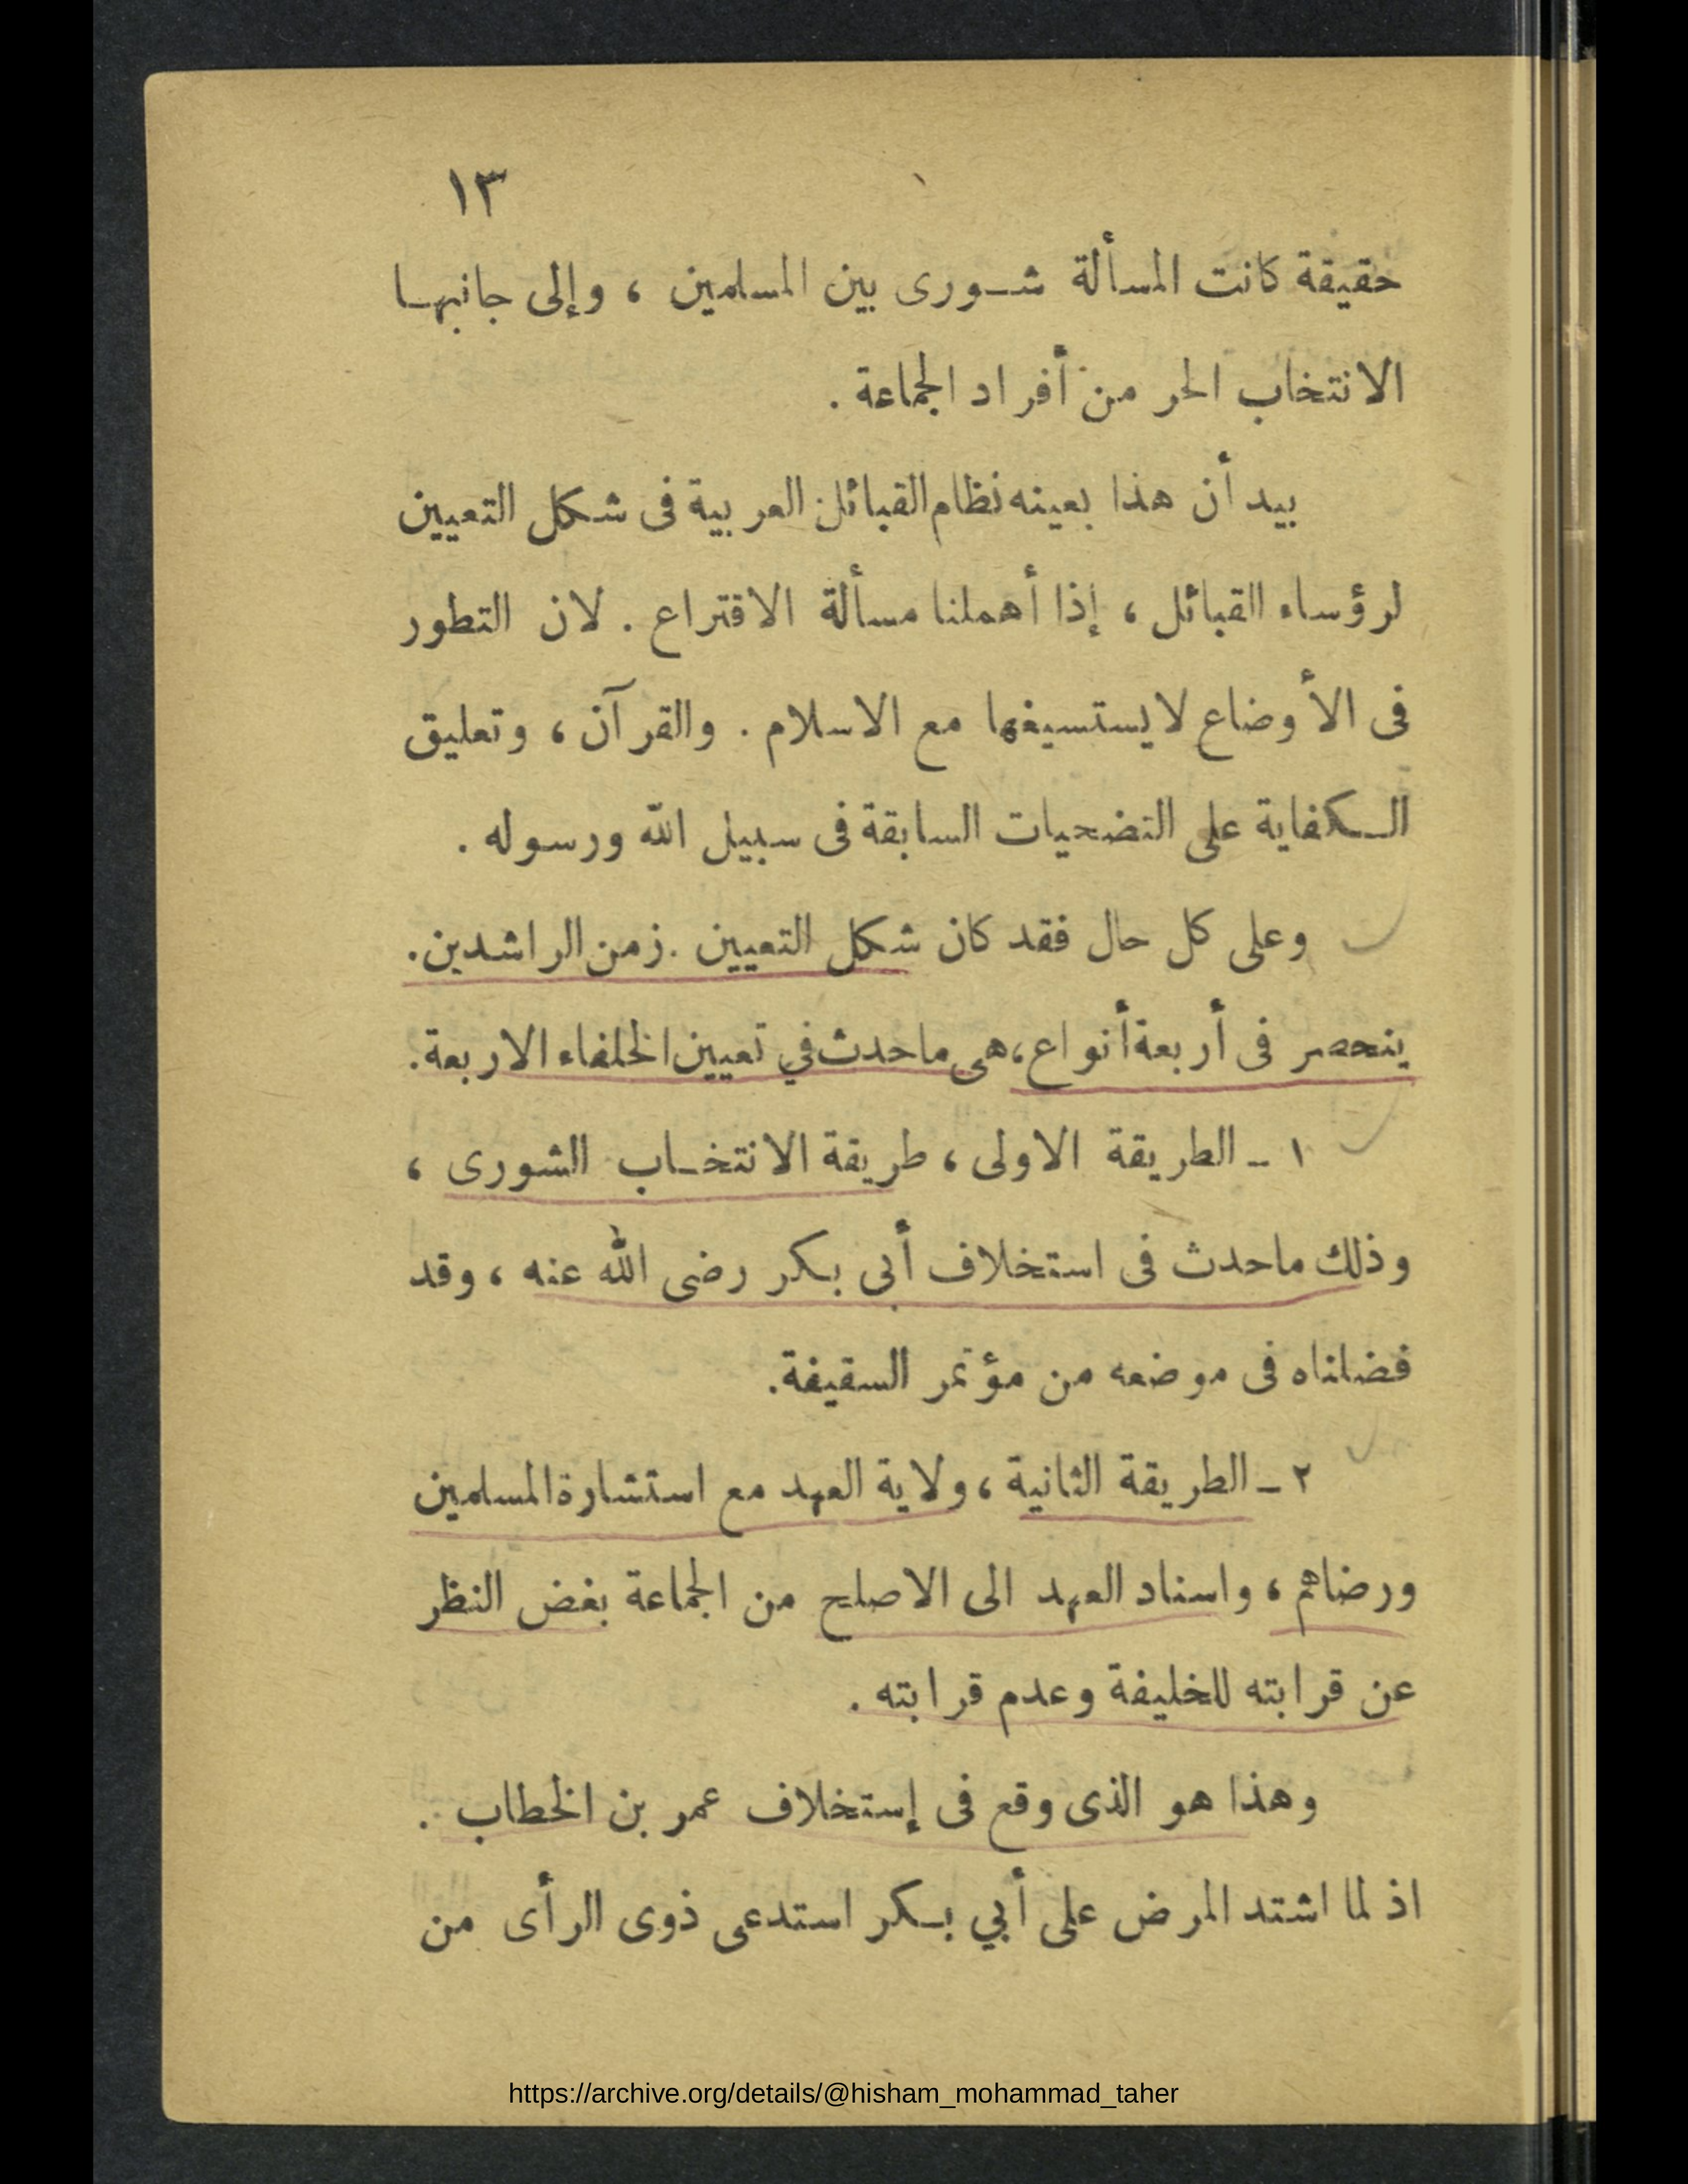 ١٣
حقيقة كانت المسألة شورى بين المسلمين ، وإلى جانبها
الانتخاب الحر من أفراد الجماعة .
بيد أن هذا بعينه نظام القبائل العربية فى شكل التعيين
لرؤساء القبائل ، إذا أهملنا مسألة الاقتراع . لان التطور
فى الأوضاع لا يستسيغها مع الاسلام . والقرآن ، وتعليق
الكفاية على التضحيات السابقة فى سبيل الله ورسوله .
وعلى كل حال فقد كان شكل التعيين . زمن الراشدين .
ينحصر فى أربعة أنواع ، هى ماحدث في تعيين الخلفاء الاربعة .
١ ـ الطريقة الاولى ، طريقة الانتخاب الشورى ،
وذلك ماحدث فى استخلاف أبى بكر رضى الله عنه ، وقد
فضلناه فى موضعه من مؤتمر السقيفة .
٢ ـ الطريقة الثانية ، ولاية العهد مع استشارة المسلمين
ورضاهم ، واسناد العهد الى الاصلح من الجماعة بغض النظر
عن قرابته للخليفة وعدم قرابته .
وهذا هو الذى وقع فى إستخلاف عمر بن الخطاب .
اذ لما اشتد المرض على أبي بكر استدعى ذوى الرأى من
https://archive.org/details/@hisham_mohammad_taher